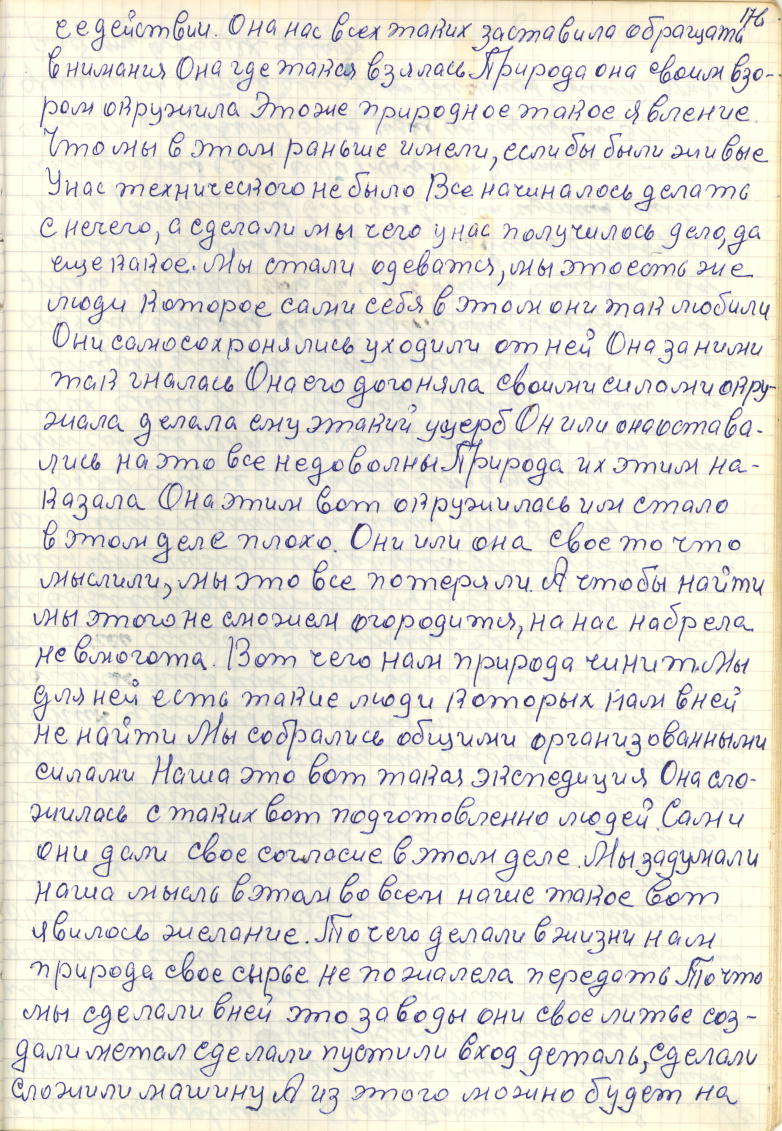 176
се действии. Она нас всех таких заставила обращать
внимания Она где такая взялась Природа она своим взо-
ром окружила Это же природное такое явление.
Что мы в этом раньше имели, если бы были живые
У нас технического не было Все начиналось делать
с нечего, а сделали мы чего у нас получилось дело, да
еще какое. Мы стали одеватся, мы это есть же
люди которое сами себя в этом они так любили
Они самосохронялись уходили от ней Она за ними
так гналась Она его догоняла своими силами окру-
жала делала ему этакий ущерб Он или она остава-
лись на это все недоволны Природа их этим на-
казала Она этим вот окружилась им стало
в этом деле плохо. Они или она свое то что
мыслили, мы это все потеряли. А чтобы найти
мы этого не сможем огородится, на нас набрела
невмогота. Вот чего нам природа чинит. Мы
для ней есть такие люди которых нам в ней
не найти Мы собрались общими организованными
силами Наша это вот такая экспедиция Она сло-
жилась с таких вот подготовленно людей. Сами
они дали свое согласие в этом деле. Мы задумали
наша мысль в этом во всем наше такое вот
явилось желание. То чего делали в жизни нам
природа свое сырье не пожалела передать То что
мы сделали в ней это заводы они свое литье соз-
дали метал сделали пустили вход деталь, сделали
сложили машину А из этого можно будет на